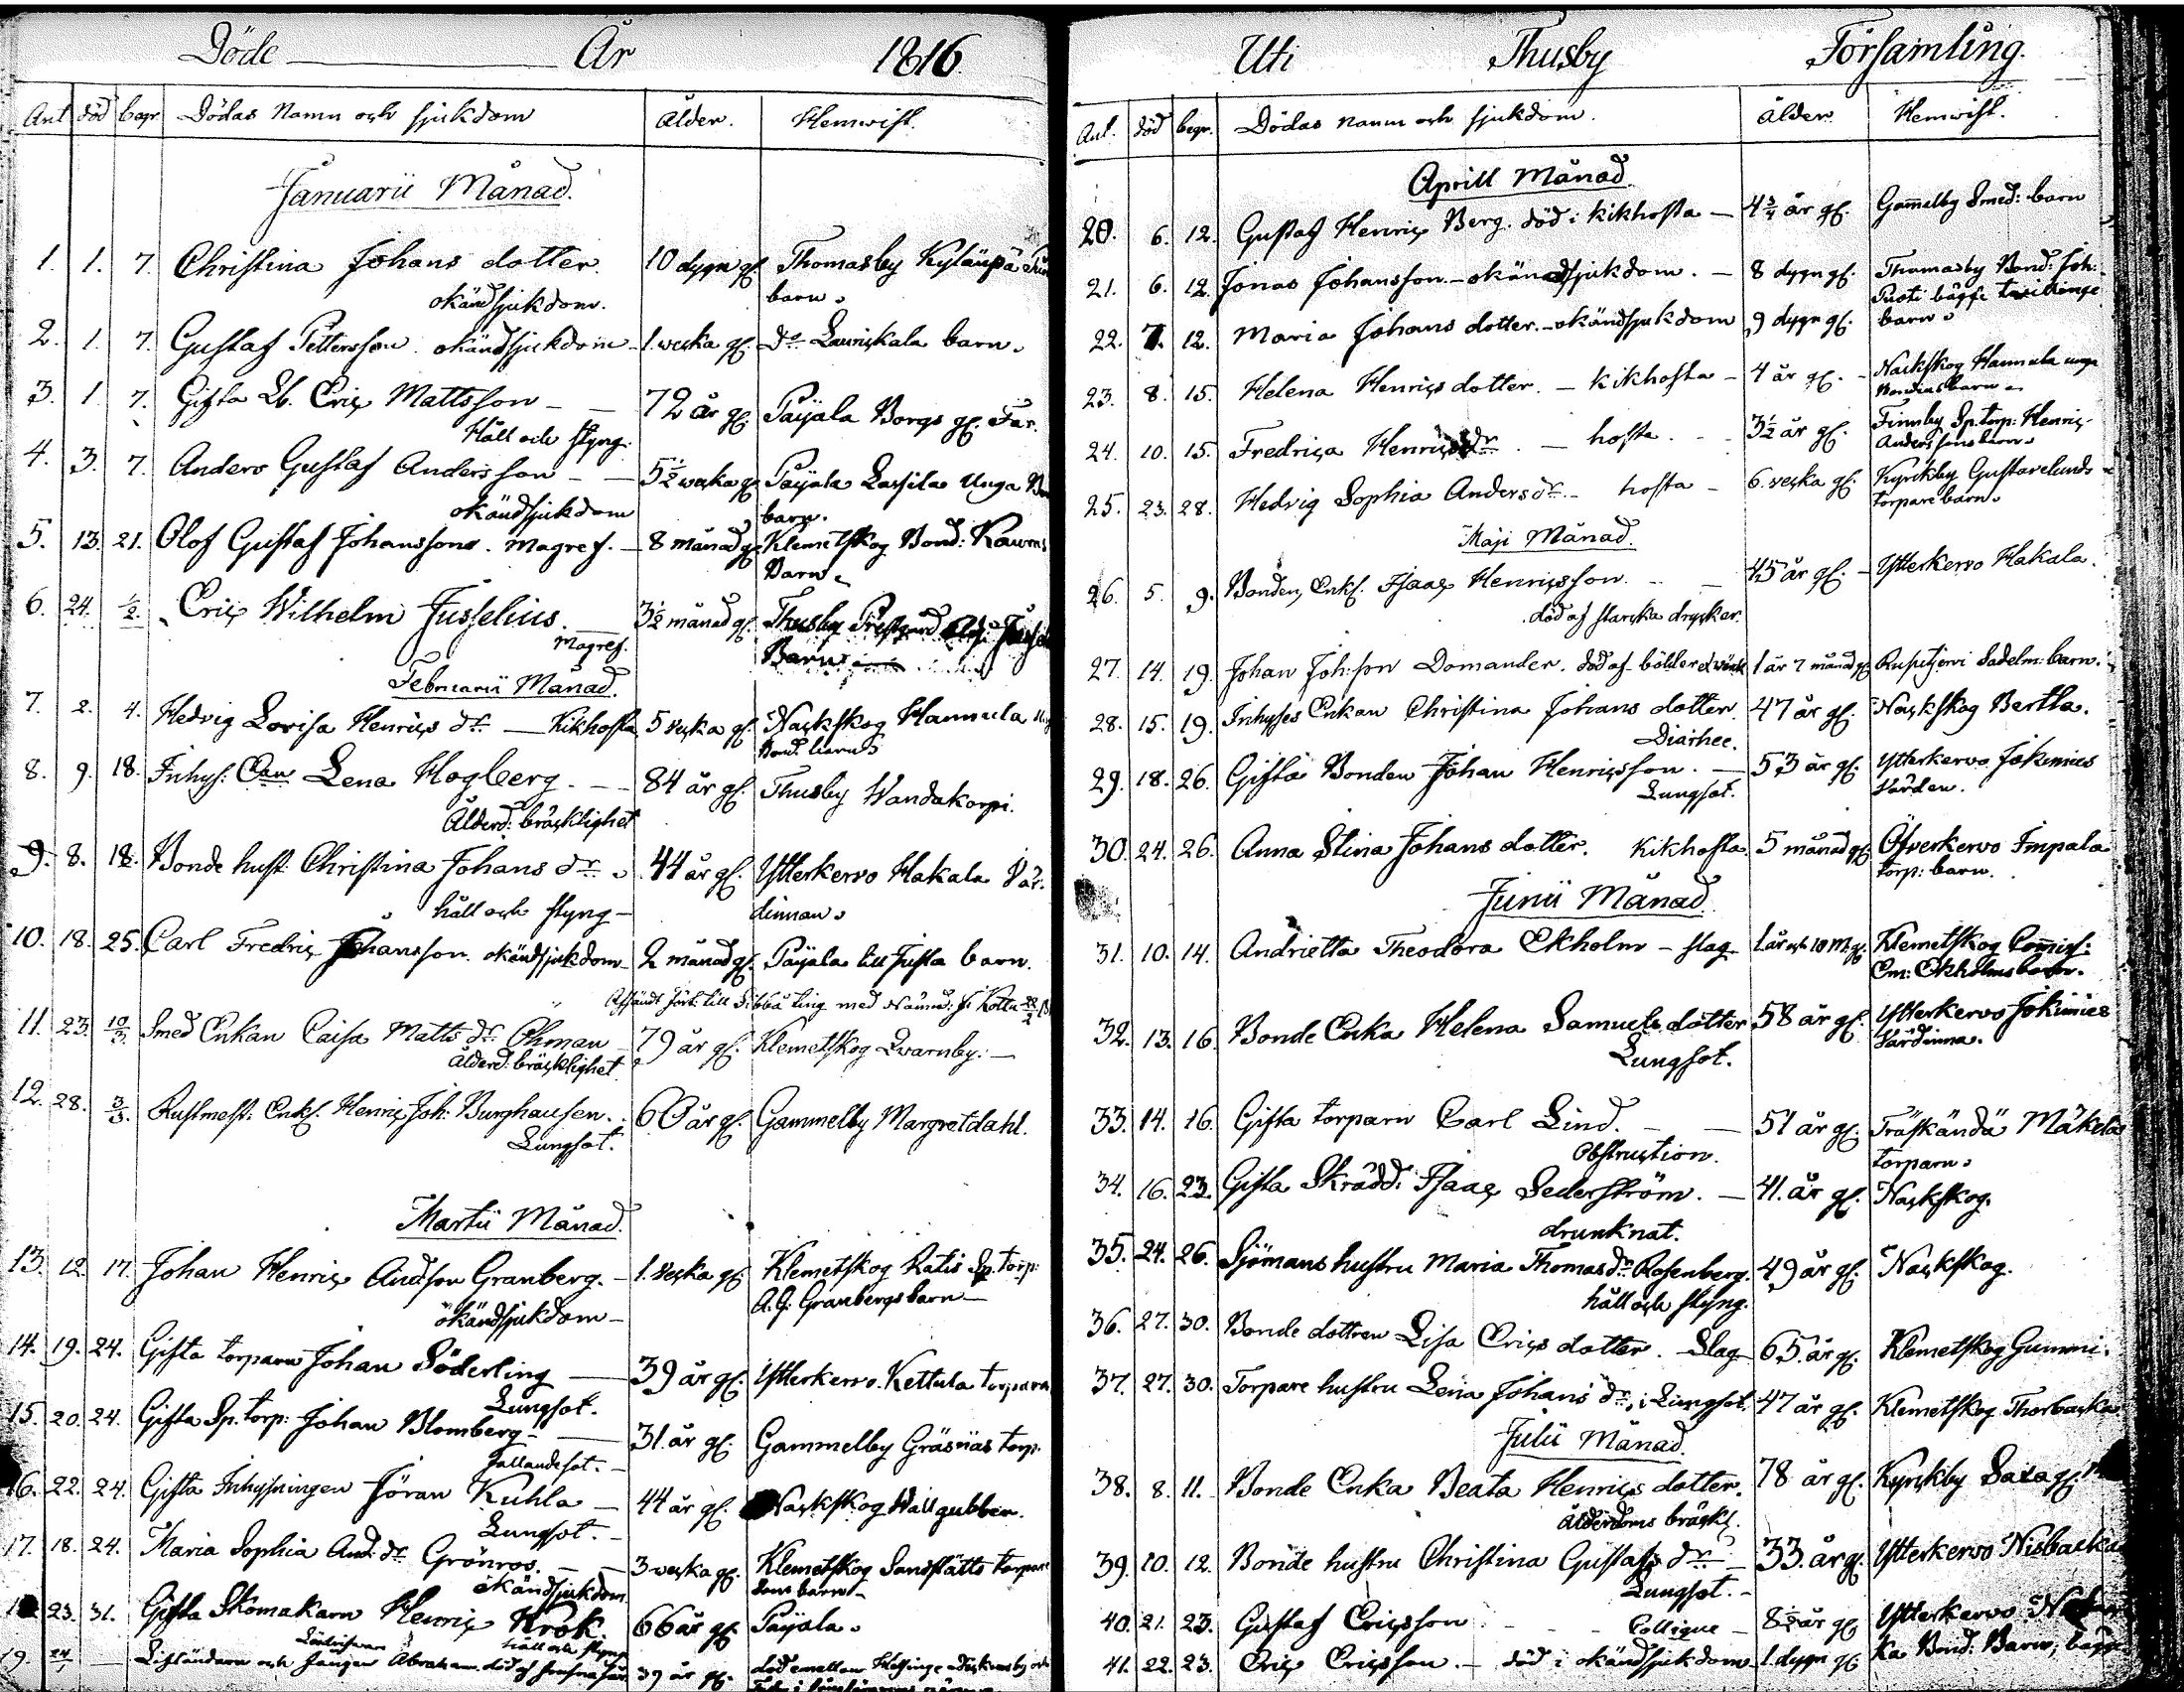 Döde År 1816.
Ant död begr. Dödas Namn och sjukdom ålder. Hemvist.
Januarii Månad.
1. 1. 7. Christina Johans dotter. 10 dygn gl. Thomasby Kylänpä
okänd sjukdom. barn.
2. 1. 7. Gustaf Pettersson okänd sjukdom 1. vecka gl. Do Laurickala barn.
3. 1. 7. Gifta Eric Mattsson 72 år gl. Paijala Borgs gl. Far.
Håll och styng.
4. 3. 7. Anders Gustaf Andersson 5½ vecka gl. Paijala Lassila Unga
okänd sjukdom barn.
5. 13. 21. Olof Gustaf Johanssons. Magref. 8 månad gl. Klemetskog Bond:
Barn.
6. 24. ½. Eric Wilhelm Jusselius. 3½ månad gl. Thusby
Magref. Barn
Februarii Månad.
7. 2. 4. Hedvig Lovisa Henrics dr. Kikhosta 5 vecka gl. Nackskog Hannula
Bond. barn
8. 9. 18. Inhys: Lena Hogberg. 84 år gl. Thusby Wandakorpi.
Ålderd: bräcklighet
9. 8. 18. Bonde hust. Christina Johans dr. 44 år gl. Ytterkervo Hakala Vär:
håll och styng dinnan.
10. 18. 25. Carl Fredric Johansson. okänd sjukdom 2 månad gl. Paijala till Justa barn.
till Sibbå ting med
11. 23. 10/3. Smed Enkan Caisa Matts dr. Öhman 79 år gl. Klemetskog Qvarnby.
Ålderd: bräcklighet.
12. 28. 3/3. Rustmest: Enkl. Henric Joh: Burghausen. 60 år gl. Gammelby Margretdahl.
Lungsot.
Martii Månad.
13. 12. 17. Johan Henric Andsson Granberg. 1. vecka gl. Klemetskog Ratis Sp. torp:
okänd sjukdom A. G. Granbergs barn
14. 19. 24. Gifta torparn Johan Söderling 39 år gl. Ytterkervo. Kettula torparn
Lungsot.
15. 20. 24. Gifta Sp. torp: Johan Blomberg 31. år gl. Gammelby Gräsnäs torp.
Fallandesot.
16. 22. 24. Gifta Inhysningen Jöran Kuhla 44 år gl. Nackskog Wallgubben.
Lungsot.
17. 18. 24. Maria Sophia And: dr. Grönros. 3 vecka gl. Klemetskog Sandslätts torpare
okänd sjukdom. sons barn
23. 31. Gifta Skomakarn Henric Krok. 66 år gl. Paijala.
håll och styng
19. 24/1 Liflændarn och fången Abraham 39 år gl. död emellan
Uti Thusby Församling.
Ant. död begr. Dödas namn och sjukdom. ålder Hemvist.
Aprill Månad.
20. 6. 12. Gustaf Henric Berg. död i kikhosta 4¾ år gl. Gammelby Smed: barn
21. 6. 12. Jonas Johansson okänd sjukdom. 8 dygn gl. Thomasby Bond: Joh:
Puoti bägge tvillinge
22. 7. 12. Maria Johans dotter. okänd sjukdom 9 dygn gl. barn.
23. 8. 15. Helena Henrics dotter. kikhosta 4 år gl. Nackskog Hannula unga
Bondens barn
24. 10. 15. Fredrica Henrics dr. hosta. 3½ år gl. Finnby Sp. torp: Henric
Anderssons barn.
25. 23. 28. Hedvig Sophia Anders dr. hosta 6. vecka gl. Kyrckby Gustavelunds
torpare barn.
Maji Månad.
26. 5. 9. Bonden, Enkl. Isaac Henricsson. 45 år gl. Ytterkervo Hakala.
död af starcka drycker.
27. 14. 19. Johan Joh:son Domander. död af 1 år 7 månad gl. Ruskejerwi Sadelm: barn.
28. 15. 19. Inhyses Enkan Christina Johans dotter. 47 år gl. Nackskog Bertla.
Diarhee.
29. 18. 26. Gifta Bonden Johan Henricsson. 53 år gl. Ytterkervo Jokimies
Lungsot. Värden.
30. 24. 26. Anna Stina Johans dotter. Kikhosta. 5 månad gl. Öfverkervo Impala
torp: barn.
Junii Månad.
31. 10. 14. Andrietta Theodora Ekholm slag 1 år och 10 M. gl. Klemetskog Commis:
Em: Ekholms barn.
32. 13. 16. Bonde Enka Helena Samuels dotter 58 år gl. Ytterkervo Jokimies
Lungsot. Värdinna.
33. 14. 16. Gifta torparn Carl Lind. 51 år gl. Träskändä Mäkelä
Obstruction. torparn.
34. 16. 23. Gifta Skrädd: Isaac Sederström. 41. år gl. Nackskog.
drunknat.
35. 24. 26. Sjömans hustru Maria Thomas dr. Rosenberg. 49 år gl. Nackskog.
håll och styng.
36. 27. 30. Bonde dottren Lisa Erics dotter. Slag 65. år gl. Klemetskog Gummi.
37. 27. 30. Torpare hustru Lena Johans dr. i Lungsot. 47 år gl. Klemetskog Thorbacka
Julii Månad.
38. 8. 11. Bonde Enka Beata Henrics dotter. 78 år gl. Kyrckby Saxa gl.
ålderdoms bräckl.
39. 10. 12. Bonde hustru Christina Gustafs dr. 33. år gl. Ytterkervo Nisbacka
Lungsot.
40. 21. 23. Gustaf Ericsson Collique 8½ år gl. Ytterkervo
41. 22. 23. Eric Ericsson. död i okänd sjukdom 1. dygn gl. ka Bond. Barn, bägge